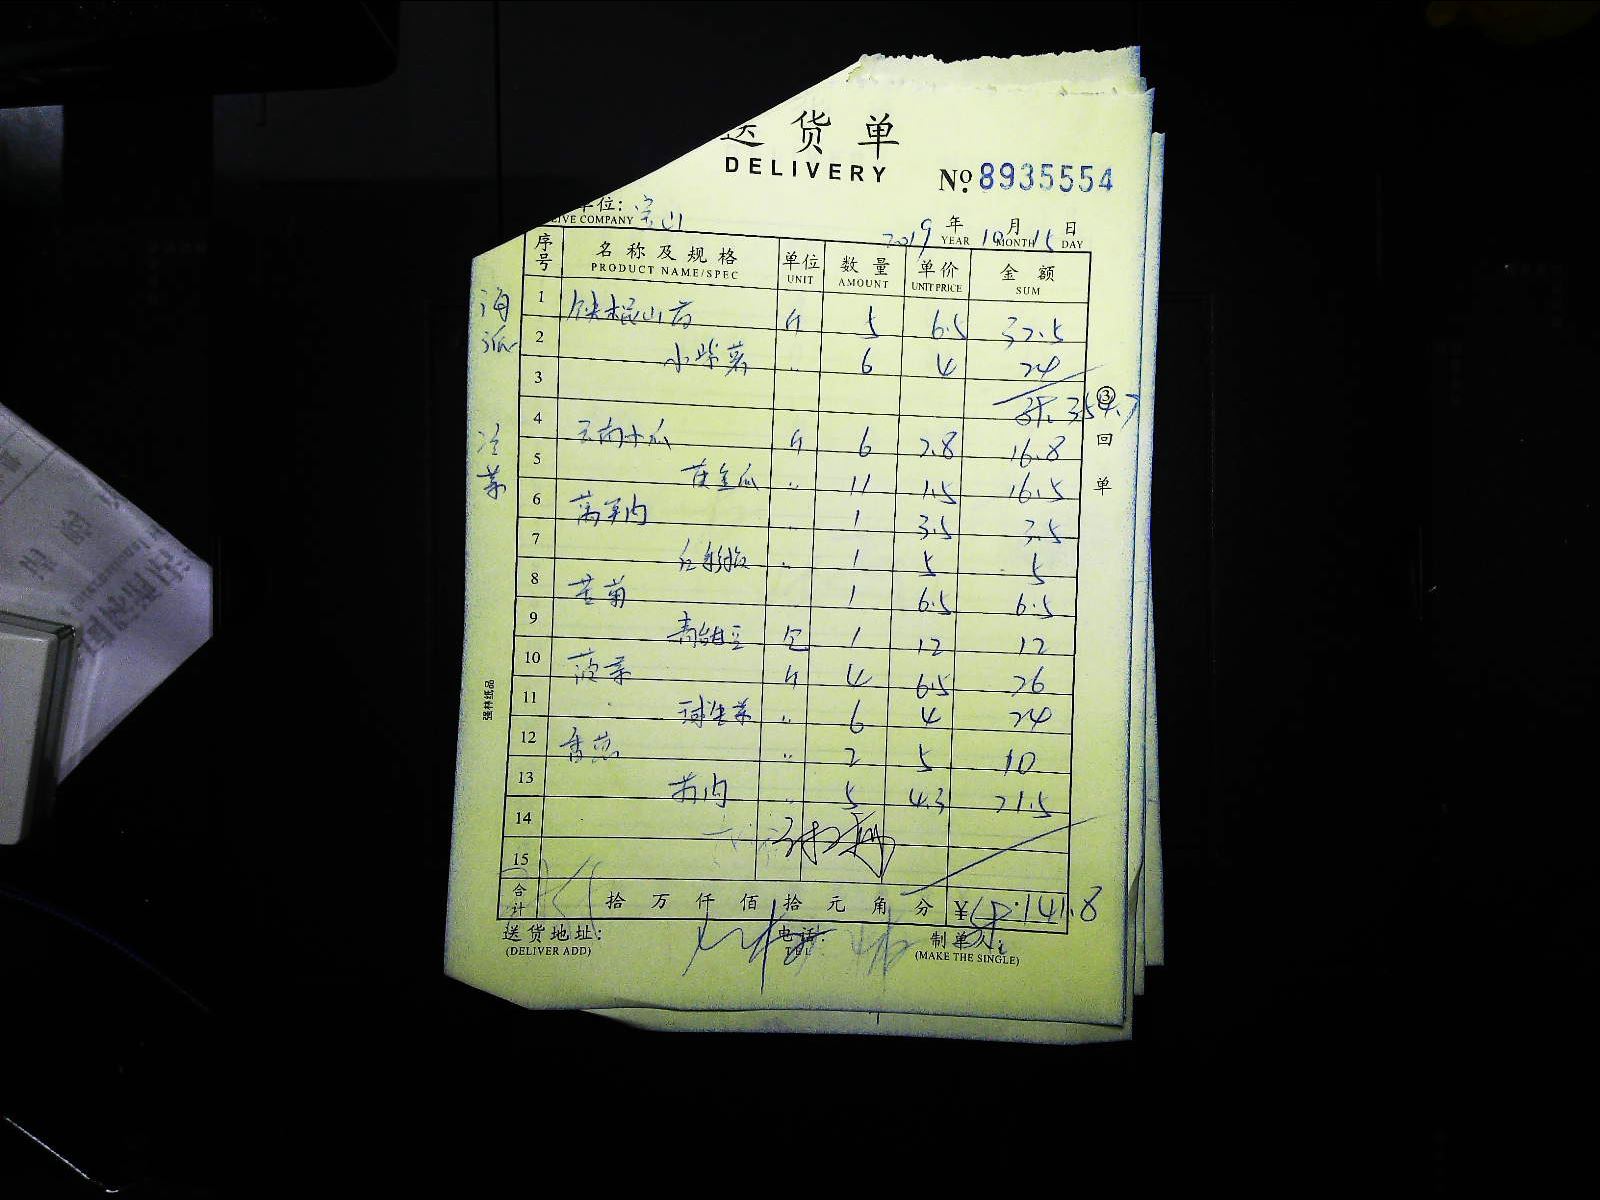 送货单
DELIVERY
№ 8935554
单位: 宝山
IVE COMPANY
2019 年 10 月 15 日
YEAR MONTH DAY
序号 名称及规格 单位 数量 单价 金额
PRODUCT NAME/SPEC UNIT AMOUNT UNIT PRICE SUM
1 铁棍山药 斤 5 6.5 32.5
2 小紫薯 〃 6 4 24
3
354.7
4 云南小瓜 斤 6 2.8 16.8
5 黄金瓜 〃 11 1.5 16.5
6 莴笋肉 〃 1 3.5 3.5
7 红彩椒 〃 1 5 5
8 苦菊 1 6.5 6.5
9 青甜豆 包 1 12 12
10 菠菜 斤 4 6.5 26
11 球生菜 〃 6 4 24
12 香葱 〃 2 5 10
13 〃 5 4.3 21.5
14
15
冷菜
③回单
强林纸品
合计 拾万仟佰拾元角分 ¥ 141.8
送货地址: 电话: 制单人:
(DELIVER ADD) TEL (MAKE THE SINGLE)